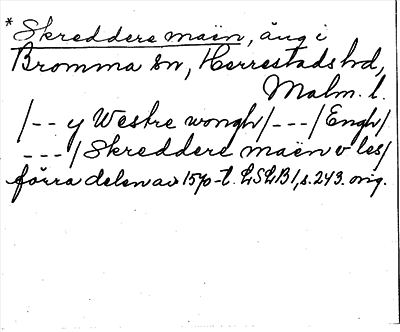 *Skreddere maën, äng i
Bromma sn, Herrestads hd,
Malm. l.
/-- y Westre wongh/---/Engh/
---/Skreddere maën v les/
förra delen av 1570-t. LSLB1, s. 243. orig.